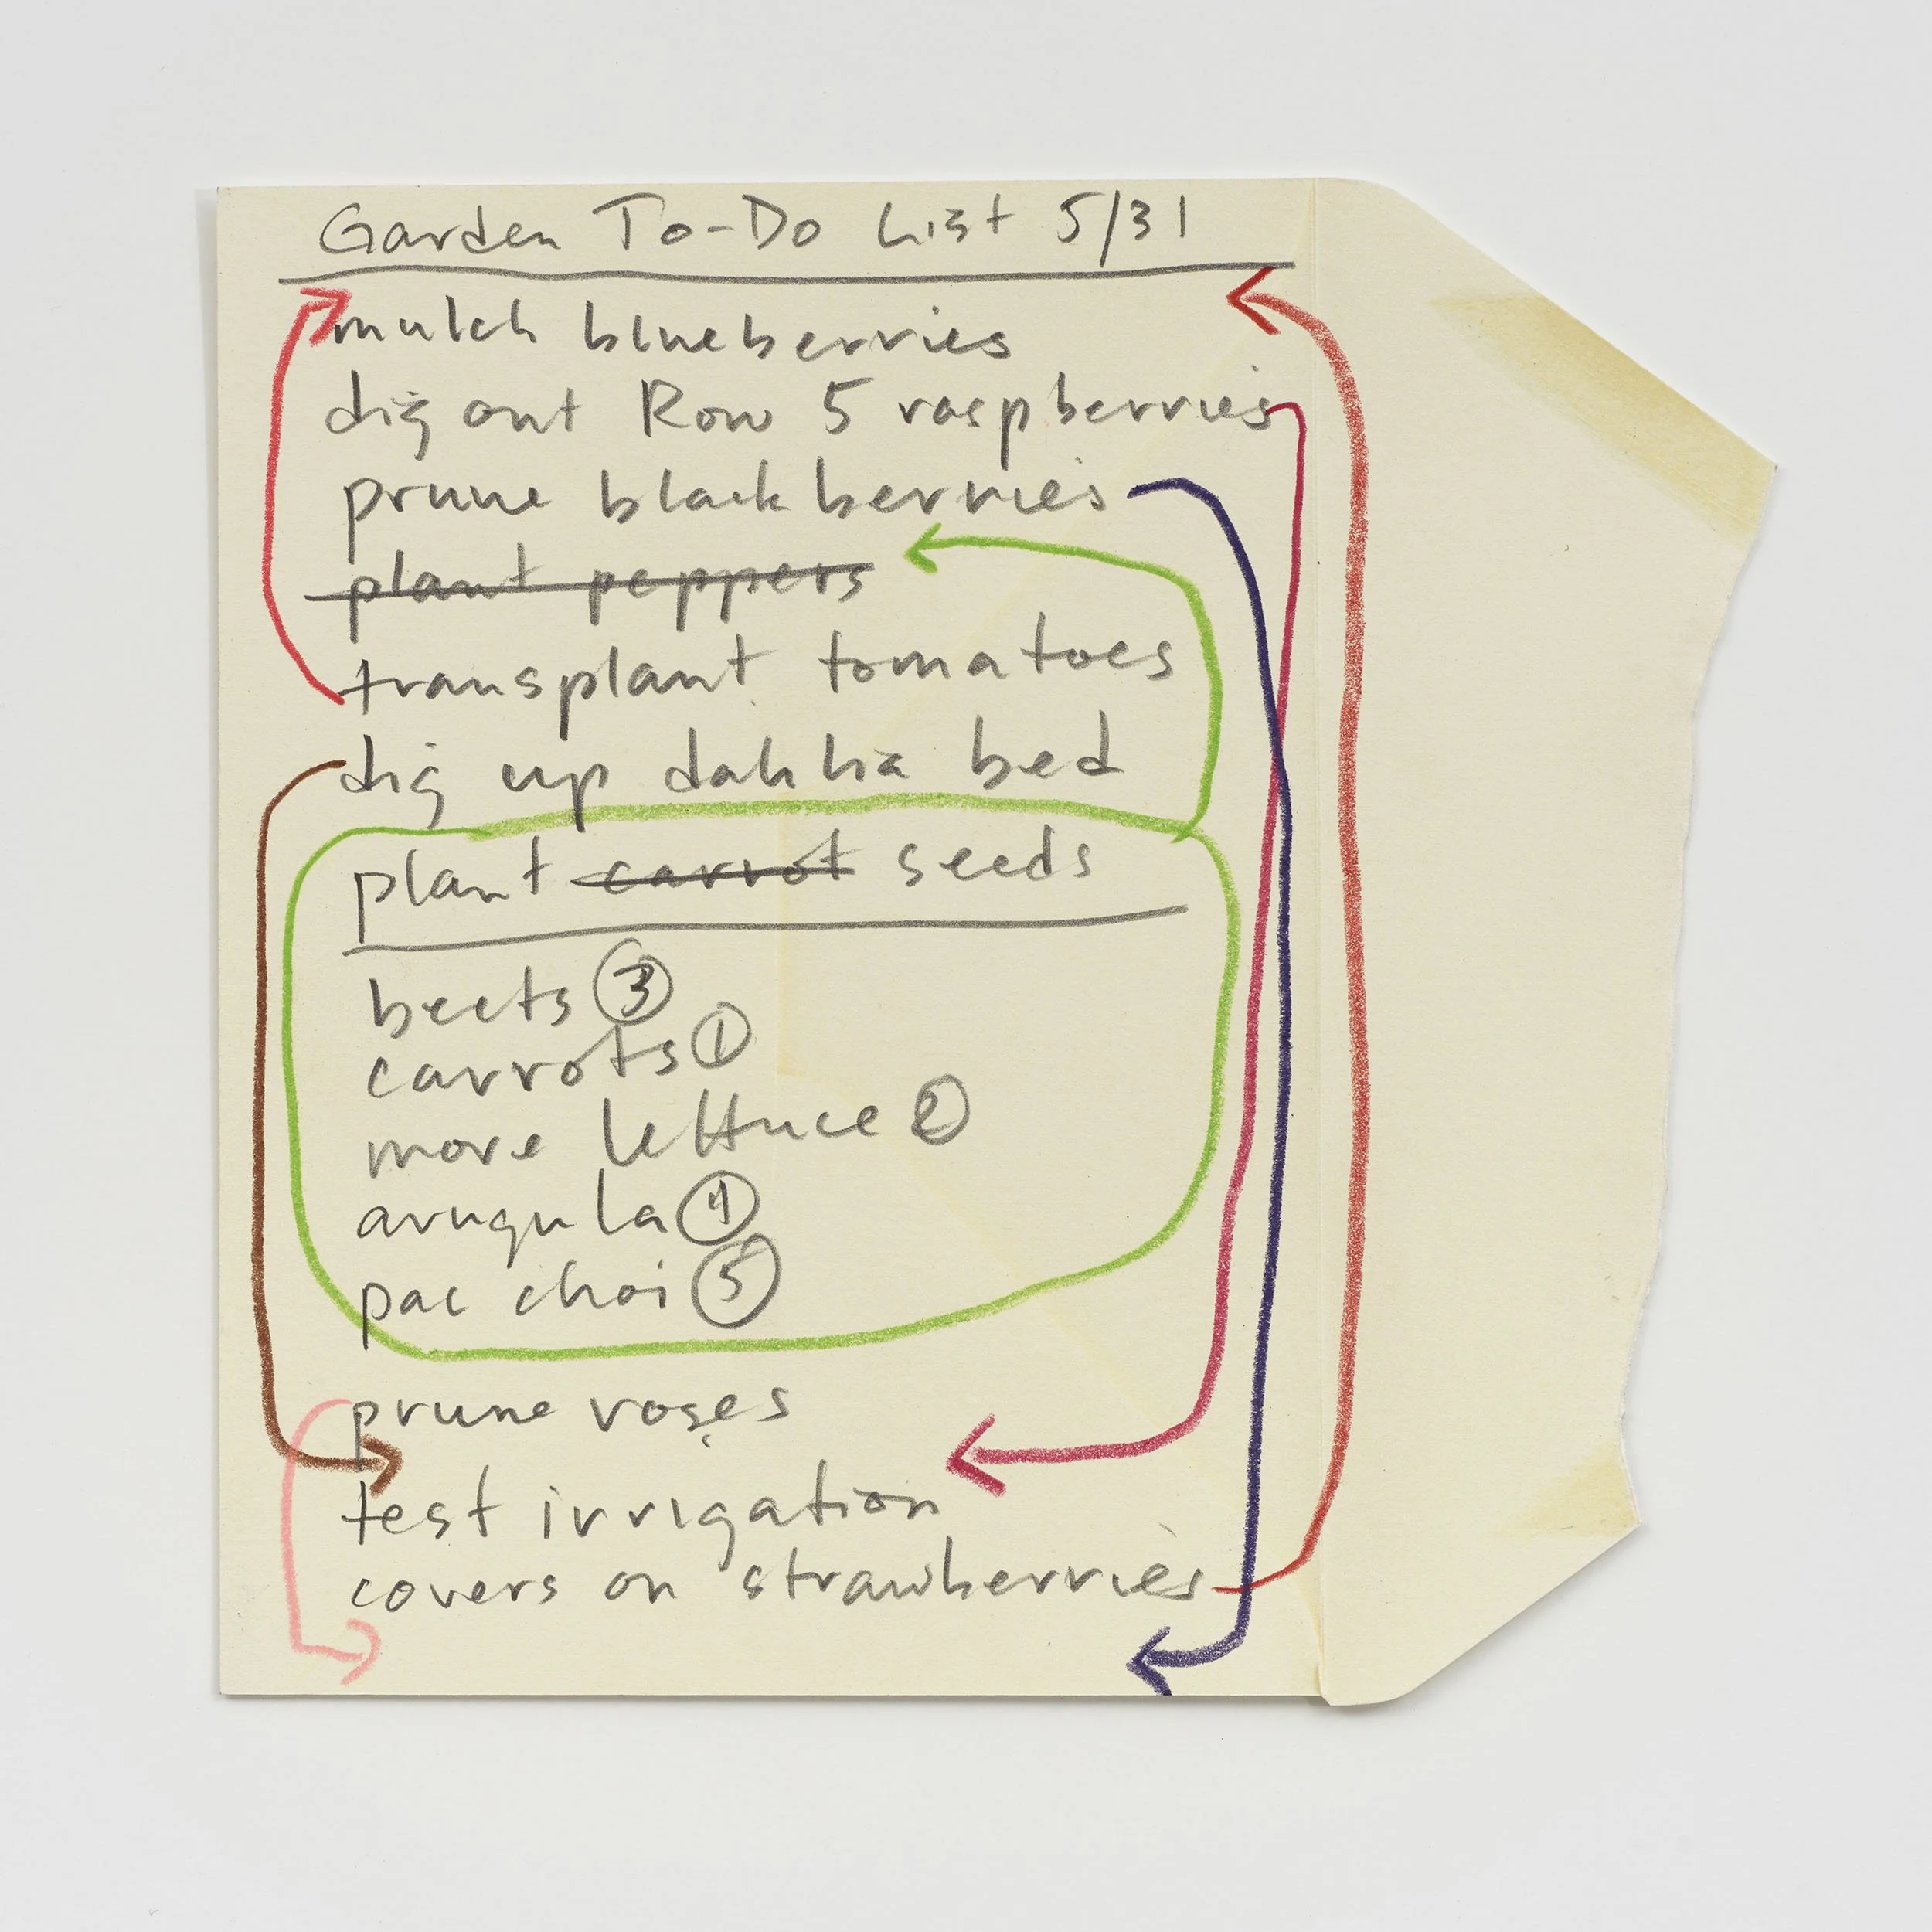 Garden To-Do List 5/31
mulch blueberries
dig out Row 5 raspberries
prune blackberries
plant peppers
transplant tomatoes
dig up dahlia bed
plant carrot seeds
beets 3
carrots 1
more lettuce 2
arugula 4
pac choi 5
prune roses
test irrigation
covers on strawberries